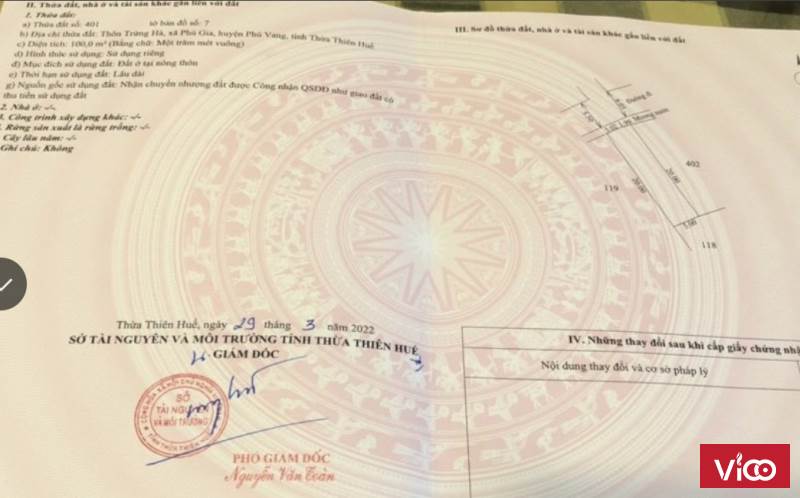 II. Thửa đất, nhà ở và tài sản khác gắn liền với đất
1. Thửa đất:
a) Thửa đất số: 401 tờ bản đồ số: 7
b) Địa chỉ thửa đất: Thôn Trừng Hà, xã Phú Gia, huyện Phú Vang, tỉnh Thừa Thiên Huế
c) Diện tích: 100,0 m² (Bằng chữ: Một trăm mét vuông)
d) Hình thức sử dụng: Sử dụng riêng
đ) Mục đích sử dụng đất: Đất ở tại nông thôn
e) Thời hạn sử dụng đất: Lâu dài
g) Nguồn gốc sử dụng đất: Nhận chuyển nhượng đất được Công nhận QSDĐ như giao đất có
thu tiền sử dụng đất
2. Nhà ở: -/-
Công trình xây dựng khác: -/-
Rừng sản xuất là rừng trồng: -/-
Cây lâu năm: -/-
Ghi chú: Không
Thừa Thiên Huế, ngày 29 tháng 3 năm 2022
SỞ TÀI NGUYÊN VÀ MÔI TRƯỜNG TỈNH THỪA THIÊN HUẾ
GIÁM ĐỐC
SỞ
TÀI NGUYÊN
VÀ MÔI TRƯỜNG
PHÓ GIÁM ĐỐC
Nguyễn Văn Toàn
III. Sơ đồ thửa đất, nhà ở và tài sản khác gắn liền với đất
Mương nước
402
119
20.00
20.00
5.00
118
IV. Những thay đổi sau khi cấp giấy chứng nhậ
Nội dung thay đổi và cơ sở pháp lý
Vico